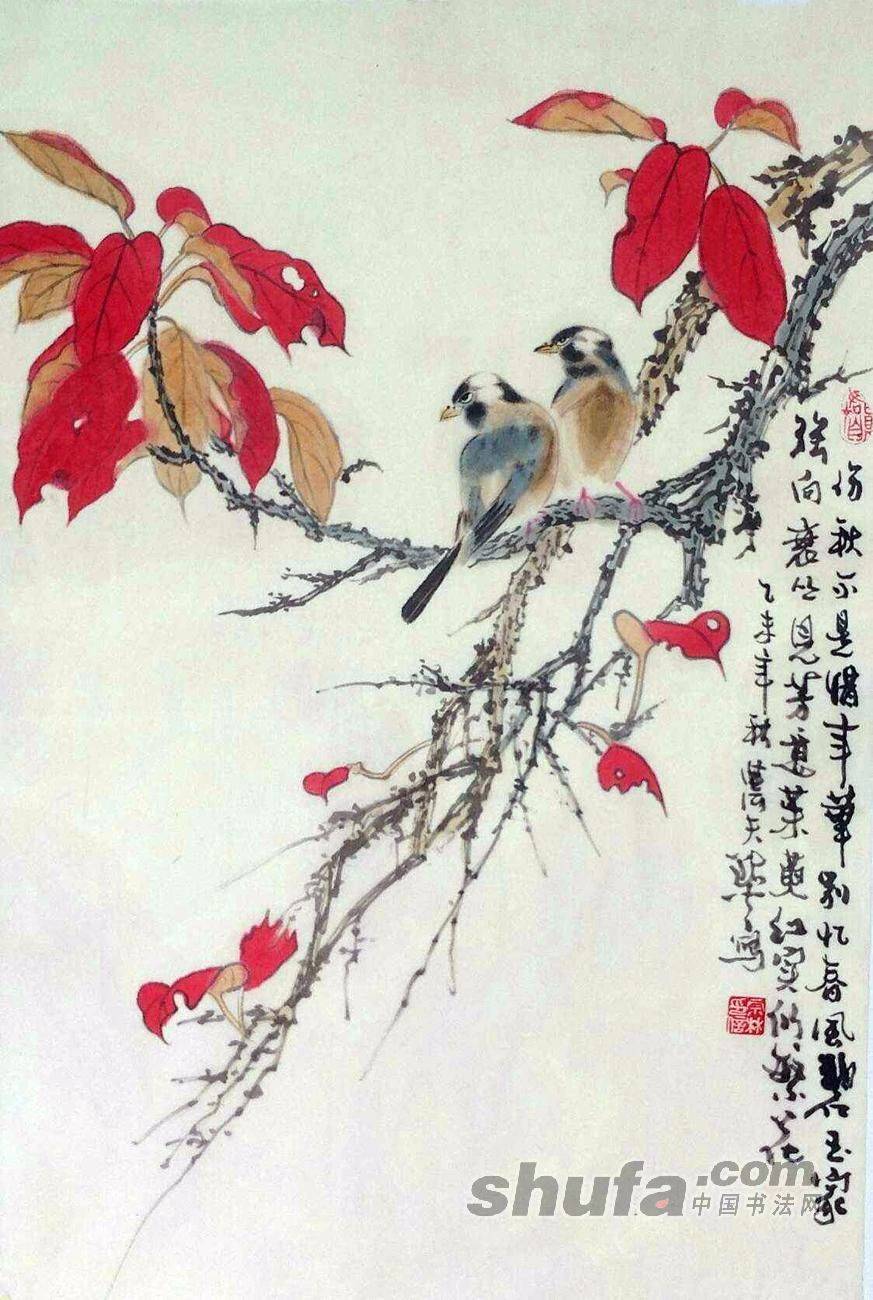 伤秋不是惜年华别忆春风碧玉家
强向衰丛见芳意茱萸红实似繁花
乙未年秋黄天 写
宗林
shufa.com
中国书法网